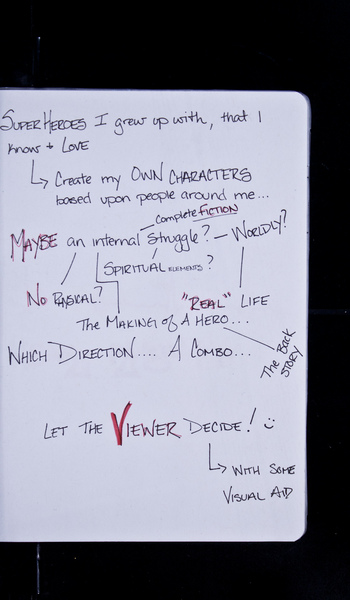 SUPERHEROES I grew up with, that I
know + LOVE
Create my OWN CHARACTERS
based upon people around me...
complete FICTION
MAYBE an internal struggle? - WORLDLY?
SPIRITUAL ELEMENTS?
NO PHYSICAL?
"REAL" LIFE
The MAKING of A HERO...
The BACK
STORY
WHICH DIRECTION.... A COMBO...
LET THE VIEWER DECIDE! :)
WITH SOME
VISUAL AID